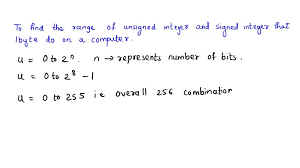 To find the range of unsigned integer and signed integer that
1byte do on a computer.
u = 0 to 2ⁿ. n → represents number of bits.
u = 0 to 2⁸ - 1
u = 0 to 255 i.e overall 256 combination